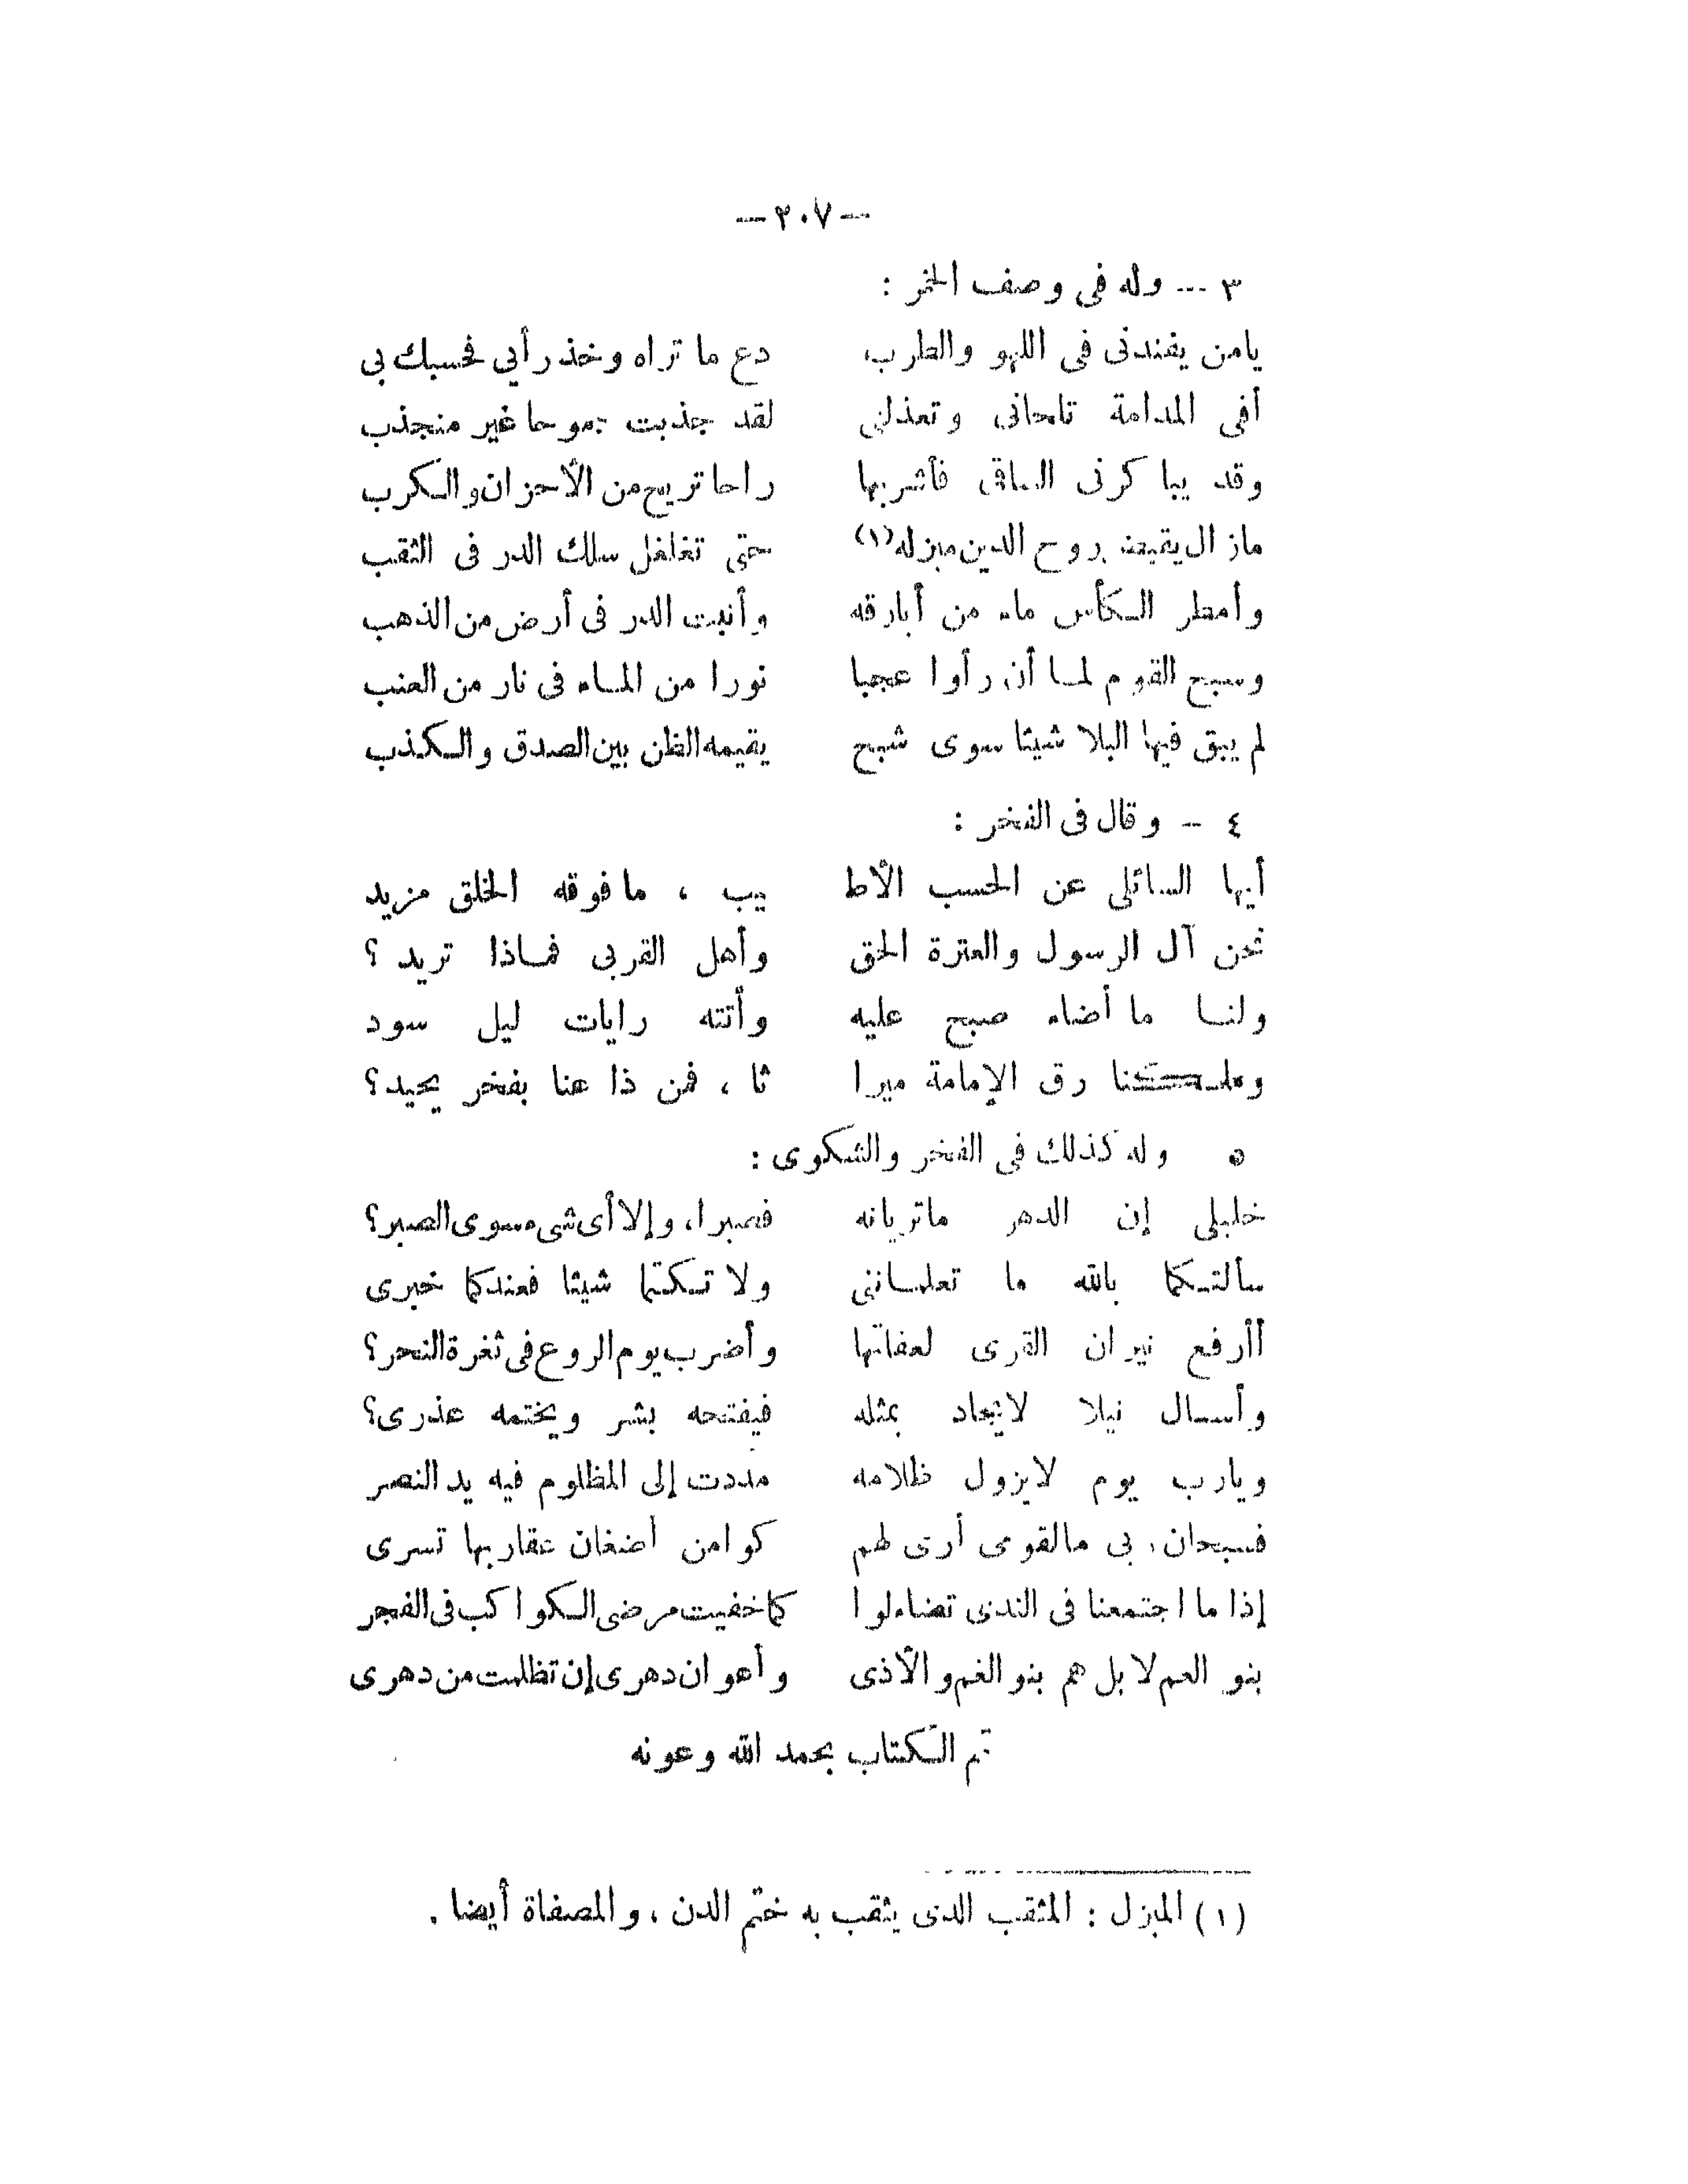 — ٢٠٧ —
٣ — وله فى وصف الخمر :
يامن يفندنى فى اللهو والطرب دع ما تراه وخذ رأيى فحسبك بى
أفى المدامة تلحانى وتعذلنى لقد جذبت جموحا غير منجذب
وقد يباكرنى الساقى فأشربها راحا تريح من الأحزان والكرب
مازال يقبض روح الدن مبزله (١) حتى تغلغل سلك الدر فى الثقب
وأمطر الكأس ماء من أبارقه وأنبت الدر فى أرض من الذهب
وسبح القوم لما أن رأوا عجبا نورا من الماء فى نار من العنب
لم يبق فيها البلا شيئا سوى شبح يقيمه الظن بين الصدق والكذب
٤ — وقال فى الفخر :
أيها السائلى عن الحسب الأط يب ، ما فوقه الخلق مزيد
نحن آل الرسول والعترة الحق وأهل القربى فماذا تريد ؟
ولنا ما أضاء صبح عليه وأتته رايات ليل سود
وملكنا رق الإمامة ميرا ثا ، فمن ذا عنا بفخر يحيد؟
٥ وله كذلك فى الفخر والشكوى :
خليلى إن الدهر ماتريانه فصبرا، وإلا أى شىء سوى الصبر؟
سألتكما بالله ما تعلماننى ولا تكتما شيئا فعندكما خبرى
أأرفع نيران القرى لعفاتها وأضرب يوم الروع فى ثغرة النحر؟
وأسال نيلا لايجاد بمثله فيفتحه بشر ويختمه عذرى؟
ويارب يوم لايزول ظلامه مددت إلى المظلوم فيه يد النصر
فسبحان بى مالقومى أرى لهم كوامن أضغان عقاربها تسرى
إذا ما اجتمعنا فى الندى تضاءلوا كما خفيت مرضى الكواكب فى الفجر
بنو العم لا بل هم بنو الغم والأذى وأعوان دهرى إن تظلمت من دهرى
تم الكتاب بحمد الله وعونه
(١) المبزل : المثقب الذى يثقب به ختم الدن ، والمصفاة أيضا .